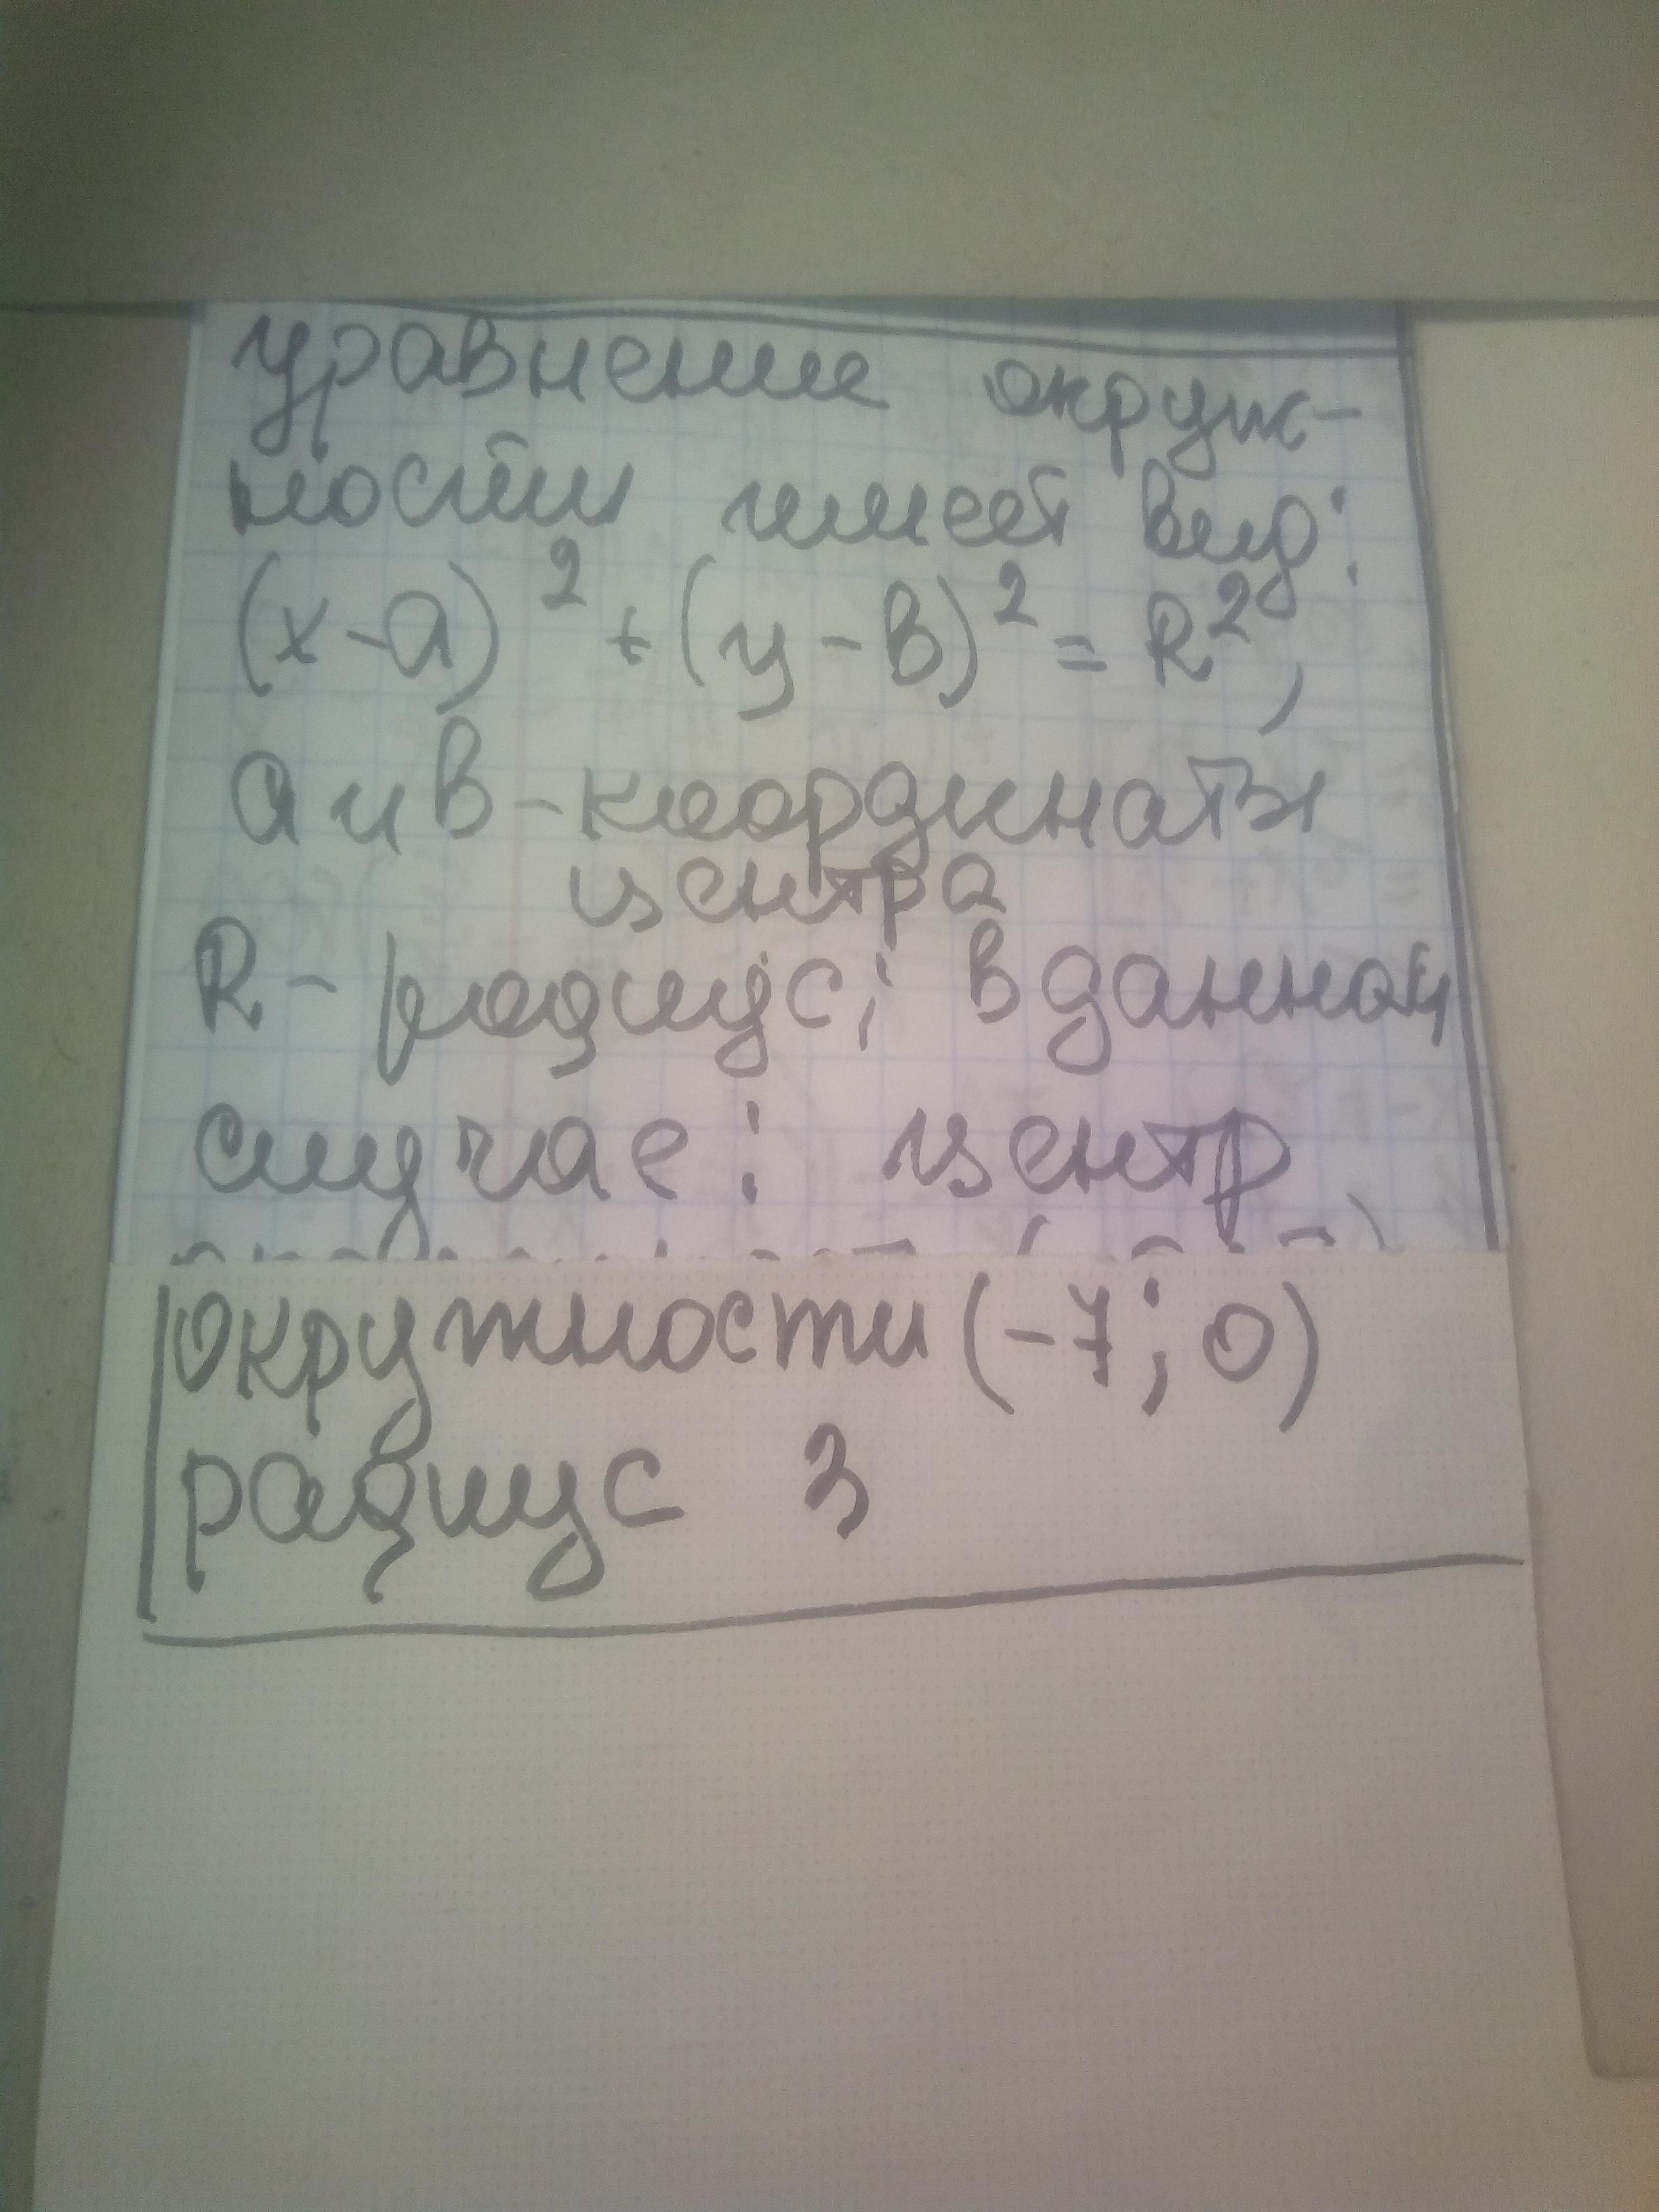 уравнение окруж-
ности имеет вид:
(x-a)² + (y-в)² = R²,
а и в - координаты
центра
R - радиус; в данном
случае: центр
окружности (-7; 0)
радиус 3